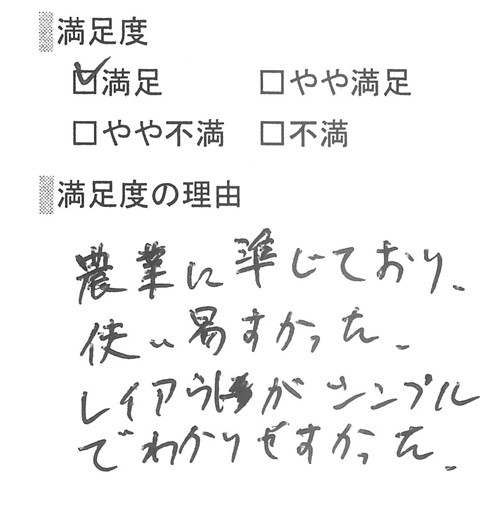 満足度
☑満足 □やや満足
□やや不満 □不満
満足度の理由
農業に準じており、
使い易すかった、
レイアウトがシンプル
でわかりぜすかった、